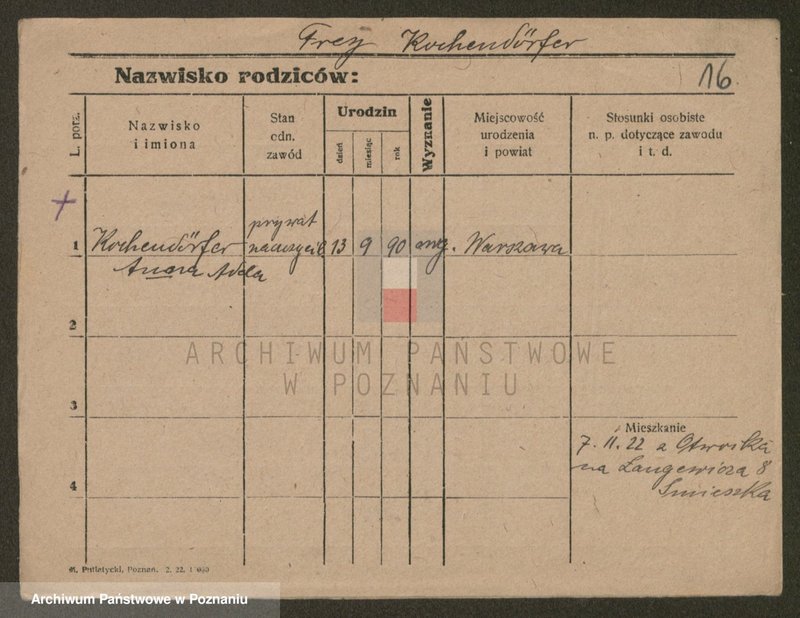 Frey Kochendörfer
Nazwisko rodziców:
16.
L. porz.
Nazwisko
i imiona
Stan
odn.
zawód
Urodzin
dzień
miesiąc
rok
Wyznanie
Miejscowość
urodzenia
i powiat
Stosunki osobiste
n. p. dotyczące zawodu
i t. d.
1
Kochendörfer
Anna Adela
prywat
nauczyciel
13
9
90
ewg.
Warszawa
2
3
4
ARCHIWUM PAŃSTWOWE
W POZNANIU
Mieszkanie
7. 11. 22 z Otwocka
na Langewicza 8
M. Putiatycki, Poznań. 2. 22.
Archiwum Państwowe w Poznaniu